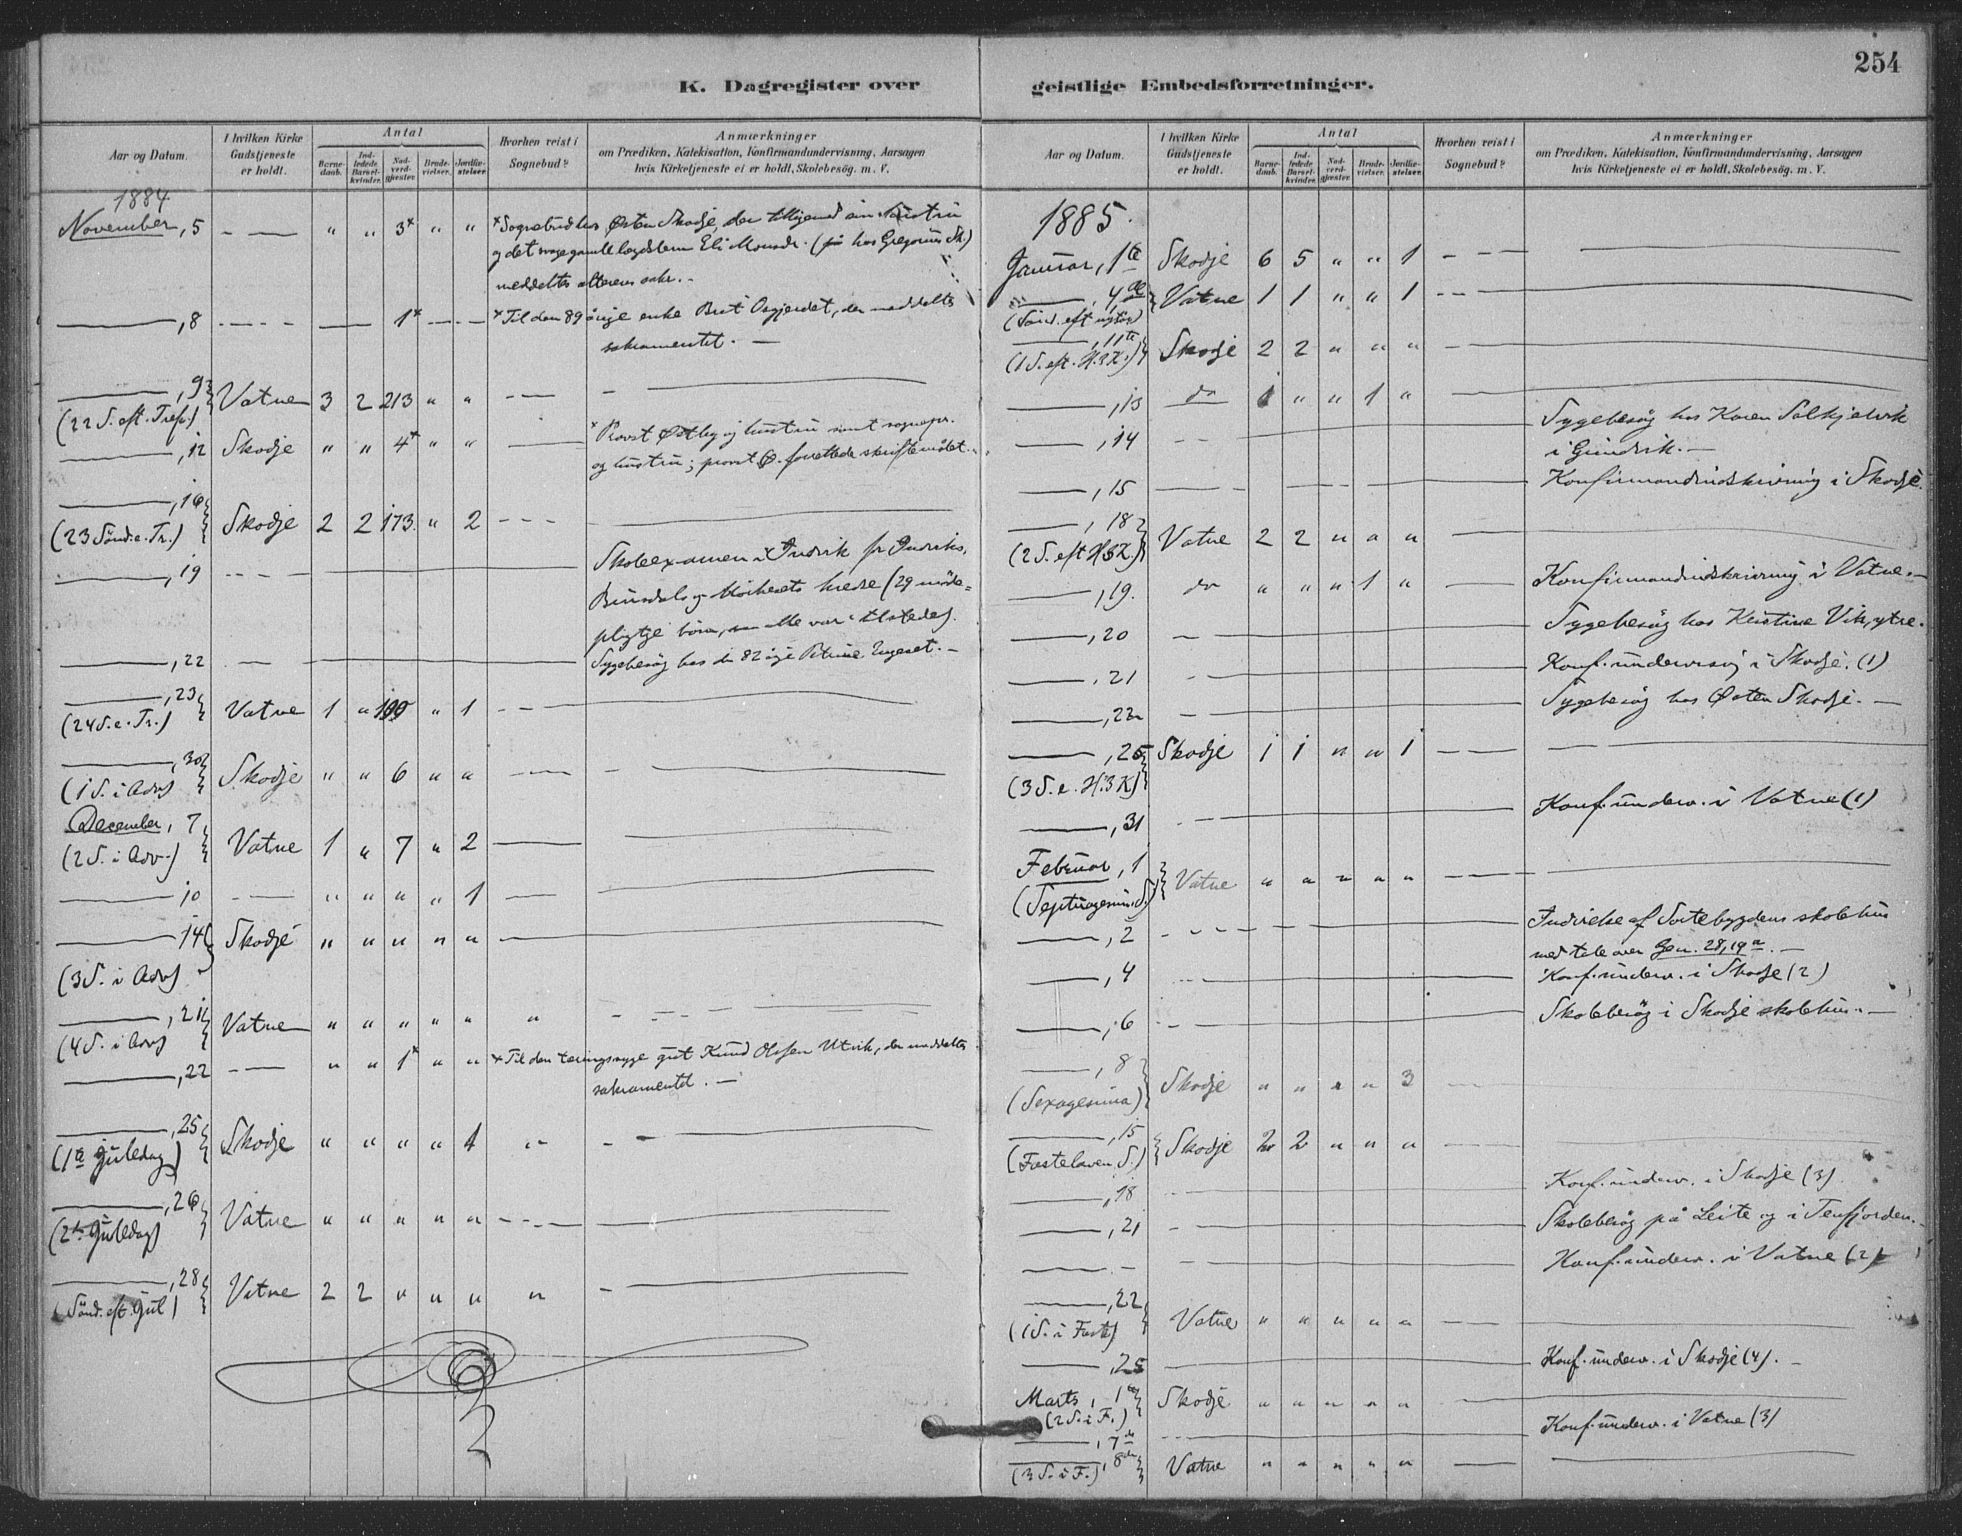 254
K. Dagregister over geistlige Embedsforretninger.
Aar og Datum.
I hvilken Kirke Gudstjeneste er holdt.
Antal
Barne-daab.
Ind-ledede Barsel-kvinder.
Nad-verd-gjæster.
Brude-vielser.
Jordfæ-stelser.
Hvorhen reist i Sognebud?
Anmærkninger
om Prædiken, Katekisation, Konfirmandundervisning, Aarsagen
hvis Kirketjeneste ei er holdt, Skolebesög. m. V.
1884
November, 5 — — — " " 3* " " * Sognebud hos Østen Skodje, der tilligemed sin hustru
og det gamle Eli (på hos Gregorius Sk.)
meddeltes alterens sakr. —
——, 8 - - - - — 1* — - — * Til den 89 årige enke Brit der meddeltes
sakramentet. —
——, 9
(22 S. eft. Tref.) Vatne 3 2 213 " " - — —
——, 12 Skodje " " 4* " " —— * Provst Østby og hustru samt sognepr.
og hustru; provst Ø. forrettede skriftemålet.
——, 16
(23 Sönd. e. Tr.) Skodje 2 2 173 " 2 - — —
——, 19 - - — Skoleexamen i for
og kredse (29 møde=
pligtige börn, som alle var tilstede).
——, 22 - — Sygebesög hos den 82 årige Petrine —
——, 23
(24 S. e. Tr.) Vatne 1 " " 1 - — —
——, 30
(1 S. i Adv.) Skodje " " 6 " " - — —
December, 7
(2 S. i Adv.) Vatne 1 " 7 " 2 ——
—— 10 - — " " " " 1 ——
—— 14
(3 S. i Adv.) Skodje " " " " " ——
——, 21
(4 S. i Adv.) Vatne " " " " " "
——, 22 - — — " " 1* " " * Til den tæringssyge gut Knud Olsen Utvik, der meddeltes
sakramentet. —
——, 25
(1te Juledag) Skodje " " " " 1 "
——, 26
(2den Juledag) Vatne " " " " " - - —
——, 28
(Sönd. eft. Jul) Vatne 2 2 " " " "
Aar og Datum.
I hvilken Kirke Gudstjeneste er holdt.
Antal
Barne-daab.
Ind-ledede Barsel-kvinder.
Nad-verd-gjæster.
Brude-vielser.
Jordfæ-stelser.
Hvorhen reist i Sognebud?
Anmærkninger
om Prædiken, Katekisation, Konfirmandundervisning, Aarsagen
hvis Kirketjeneste ei er holdt, Skolebesög. m. V.
1885.
Januar, 1te Skodje 6 5 " " 1 ——
——, 4de
(Sönd. eft. nytår) Vatne 1 1 " " 1 ——
——, 11te
(1 S. eft. H.3K.) Skodje 2 2 " " " ——
——, 13 do 1 " " 1 " ——
——, 14 - - — Sygebesög hos Karen
i —
——, 15 —— Konfirmandindskrivning i Skodje.
——, 18
(2 S. eft H3K.) Vatne 2 2 " " " ——
——, 19. do " " " 1 " —— Konfirmandindskrivning i Vatne. —
——, 20 — Sygebesög hos Kristine Vik, ytre.
——, 21 — Konf. undervisng i Skodje. (1)
——, 22 — Sygebesög hos Østen Skodje. —
——, 25
(3 S. e. H.3K) Skodje 1 1 " " 1 ——
——, 31 - - — Konf. underv. i Vatne (1)
Februar, 1
(Septuagesima S.) Vatne " " " " " ——
——, 2 - - - — Indvielse af Sortebygdens skolehus
med tale over Gen. 28, 19 a. —
——, 4 - - — Konf. underv. i Skodje (2)
——, 6 - - — Skolebesög i Skodje skolehus. —
——, 8
(Sexagesima) Skodje " " " " 3 ——
——, 15
(Fastelaven S.) Skodje 2 2 " " " ——
——, 18 — Konf. underv. i Skodje (3)
——, 21 — Skolebesög på Leite og i Tenfjorden. —
—— . — — Konf. underv. i Vatne (2)
——, 22
(1 S. i Faste) Vatne " " " " " ——
——, 25 —— Konf. underv. i Skodje (4). —
Marts, 1te
(2 S. i F.) Skodje " " " " " ——
——, 7de - - — Konf. underv. i Vatne (3)
——, 8de
(3 S. i F.) Vatne " " " " " ——